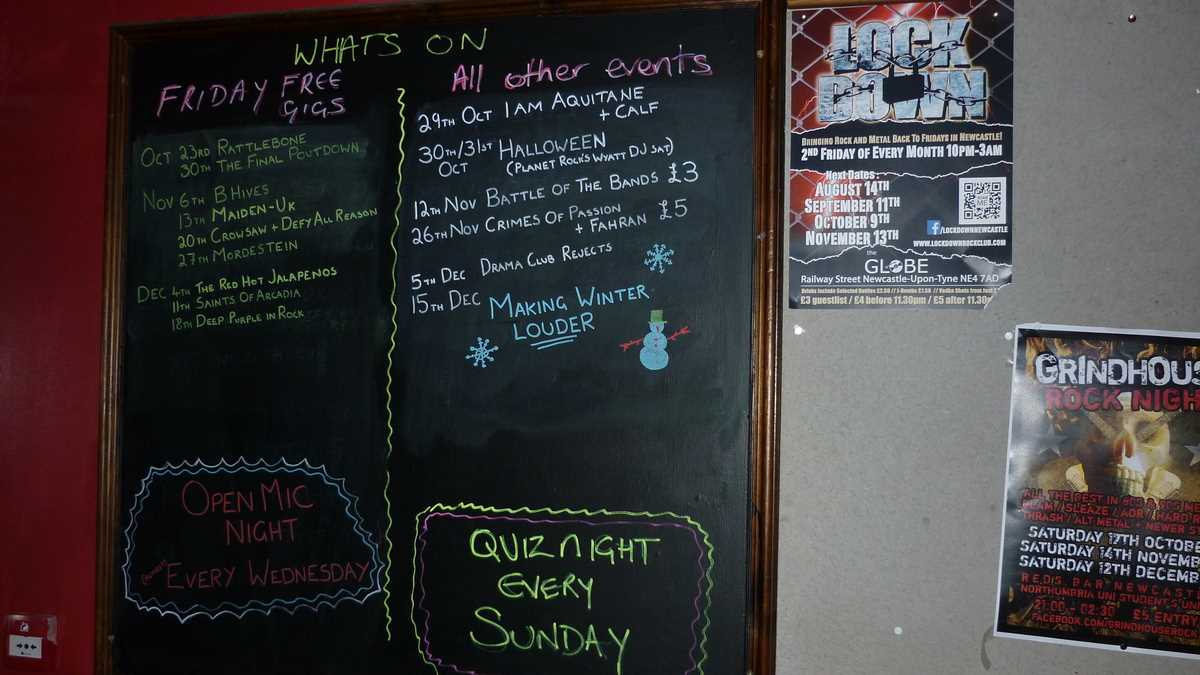 WHATS ON
FRIDAY FREE GIGS
OCT 23RD RATTLEBONE
30TH THE FINAL POUTDOWN
NOV 6TH B HIVES
13TH MAIDEN-UK
20TH CROWSAW + DEFY ALL REASON
27TH MORDESTEIN
DEC 4TH THE RED HOT JALAPENOS
11TH SAINTS OF ARCADIA
18TH DEEP PURPLE IN ROCK
OPEN MIC
NIGHT
EVERY WEDNESDAY
All other events
29TH OCT I AM AQUITANE
+ CALF
30TH/31ST OCT HALLOWEEN
(PLANET ROCK'S WYATT DJ SAT)
12TH NOV BATTLE OF THE BANDS £3
26TH NOV CRIMES OF PASSION
+ FAHRAN £5
5TH DEC DRAMA CLUB REJECTS
15TH DEC MAKING WINTER
LOUDER
QUIZ NIGHT
EVERY
SUNDAY
LOCK
DOWN
BRINGING ROCK AND METAL BACK TO FRIDAYS IN NEWCASTLE!
2ND FRIDAY OF EVERY MONTH 10PM-3AM
NEXT DATES:
AUGUST 14TH
SEPTEMBER 11TH
OCTOBER 9TH
NOVEMBER 13TH
/LOCKDOWNNEWCASTLE
WWW.LOCKDOWNROCKCLUB.COM
the
GLOBE
Railway Street Newcastle-Upon-Tyne NE4 7AD
£3 guestlist / £4 before 11.30pm / £5 after 11.30
GRINDHOUS
ROCK NIGH
ALL THE BEST IN
GLAM / SLEAZE / AOR / HARD
THRASH / ALT METAL + NEWER
SATURDAY 17TH OCTOBE
SATURDAY 14TH NOVEMB
SATURDAY 12TH DECEMB
REDS BAR NEWCAST
NORTHUMBRIA UNI STUDENTS UN
21:00 - 02:30 £5 ENTRY
FACEBOOK.COM/GRINDHOUSEROCK